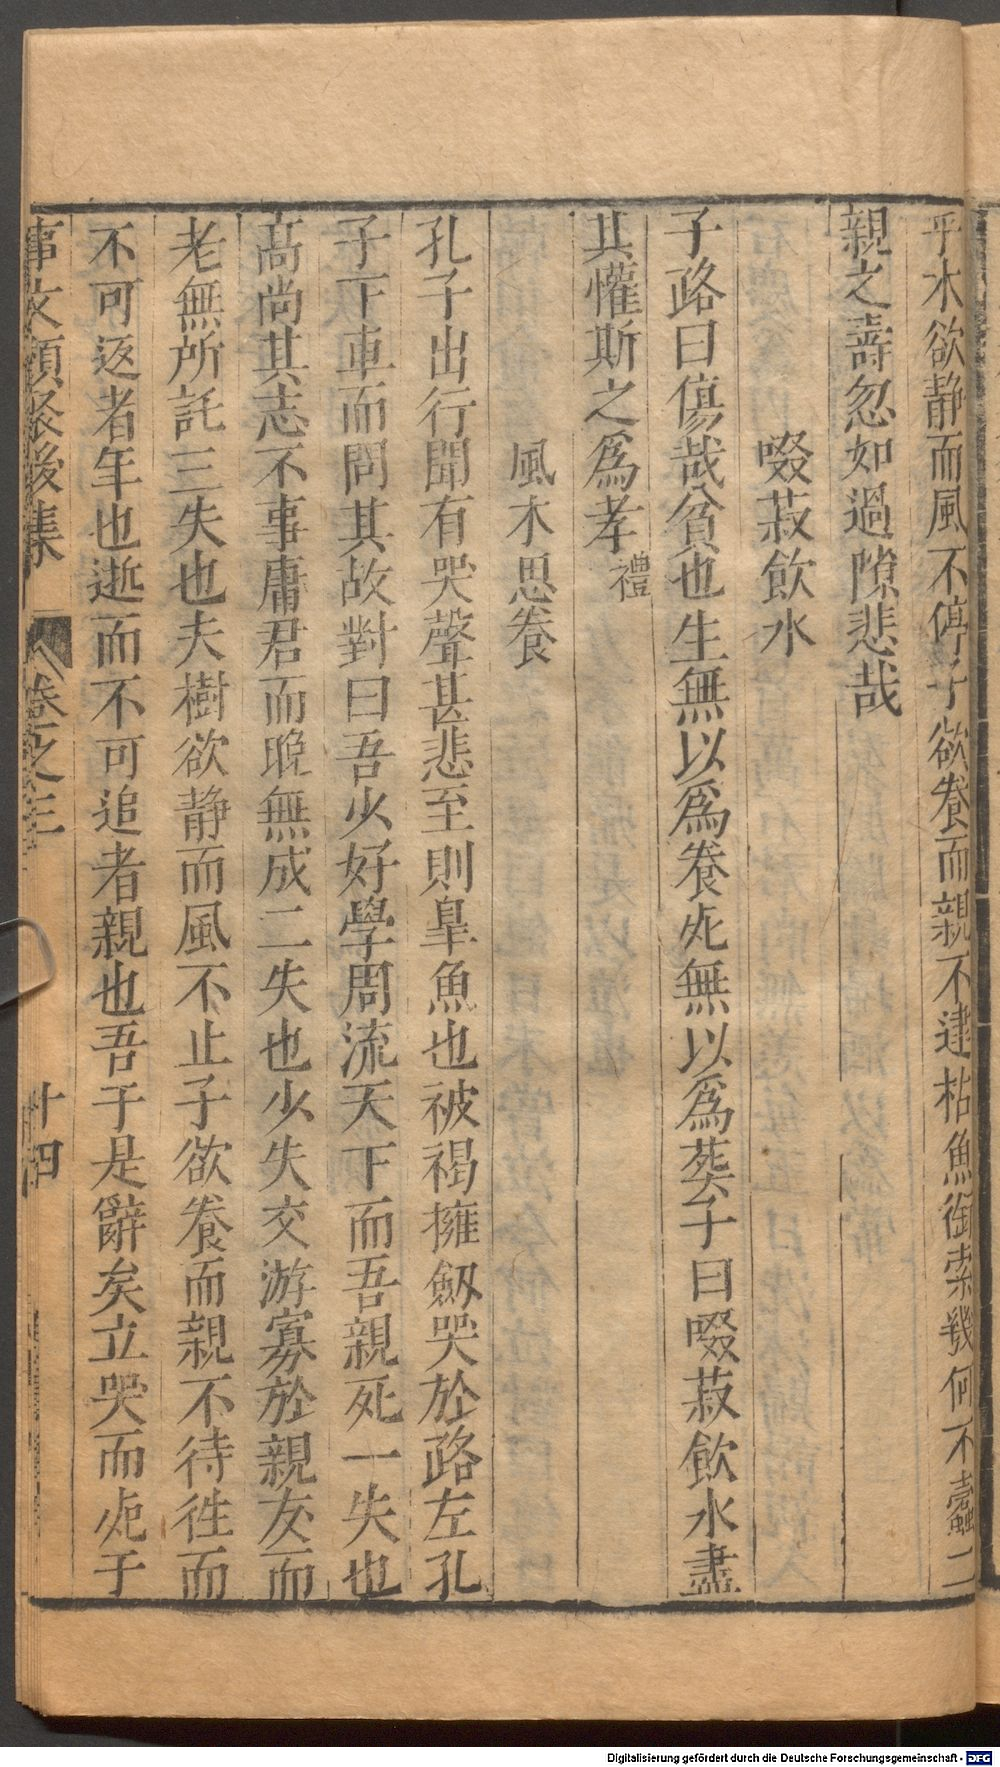 乎木欲静而風不停子欲養而親不逮枯魚銜索幾何不蠹二
親之壽忽如過隙悲哉
啜菽飲水
子路曰傷哉貧也生無以爲養死無以爲葬子曰啜菽飲水盡
其懽斯之爲孝禮
風木思養
孔子出行聞有哭聲甚悲至則臯魚也被褐擁劔哭於路左孔
子下車而問其故對曰吾少好學周流天下而吾親死一失也
高尚其志不事庸君而晚無成二失也少失交游寡於親友而
老無所託三失也夫樹欲静而風不止子欲養而親不待徃而
不可返者年也逝而不可追者親也吾于是辭矣立哭而死于
事文類聚後集 卷之三 十四
Digitalisierung gefördert durch die Deutsche Forschungsgemeinschaft - DFG